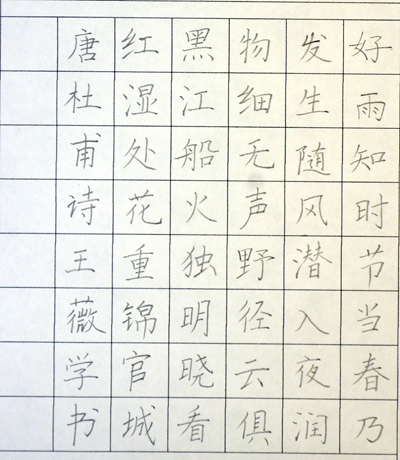 好雨知时节当春乃
发生随风潜入夜润
物细无声野径云俱
黑江船火独明晓看
红湿处花重锦官城
唐杜甫诗王薇学书